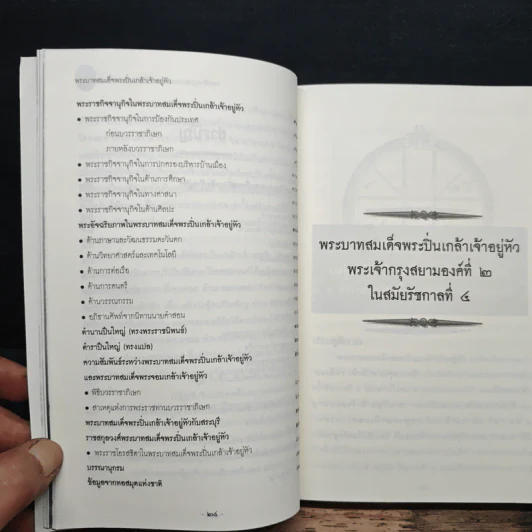 พระบาทสมเด็จพระปิ่นเกล้าเจ้าอยู่หัว
พระราชกิจจานุกิจในพระบาทสมเด็จพระปิ่นเกล้าเจ้าอยู่หัว
● พระราชกิจจานุกิจในการป้องกันประเทศ
ก่อนบวรราชาภิเษก
ภายหลังบวรราชาภิเษก
● พระราชกิจจานุกิจในการปกครองบริหารบ้านเมือง
● พระราชกิจจานุกิจในด้านการศึกษา
● พระราชกิจจานุกิจในทางศาสนา
● พระราชกิจจานุกิจในด้านศิลปะ
พระอัจฉริยภาพในพระบาทสมเด็จพระปิ่นเกล้าเจ้าอยู่หัว
● ด้านภาษาและวัฒนธรรมตะวันตก
● ด้านวิทยาศาสตร์และเทคโนโลยี
● ด้านการต่อเรือ
● ด้านการดนตรี
● ด้านวรรณกรรม
● อภิธานศัพท์จากนิทานนายคำสอน
ตำนานปืนใหญ่ (ทรงพระราชนิพนธ์)
ตำราปืนใหญ่ (ทรงแปล)
ความสัมพันธ์ระหว่างพระบาทสมเด็จพระปิ่นเกล้าเจ้าอยู่หัว
และพระบาทสมเด็จพระจอมเกล้าเจ้าอยู่หัว
● พิธีบวรราชาภิเษก
● สาเหตุแห่งการพระราชทานบวรราชาภิเษก
พระบาทสมเด็จพระปิ่นเกล้าเจ้าอยู่หัวกับสระบุรี
ราชสกุลวงศ์พระบาทสมเด็จพระปิ่นเกล้าเจ้าอยู่หัว
● พระราชโอรสธิดาในพระบาทสมเด็จพระปิ่นเกล้าเจ้าอยู่หัว
บรรณานุกรม
ข้อมูลจากหอสมุดแห่งชาติ
พระบาทสมเด็จพระปิ่นเกล้าเจ้าอยู่หัว
พระเจ้ากรุงสยามองค์ที่ ๒
ในสมัยรัชกาลที่ ๔